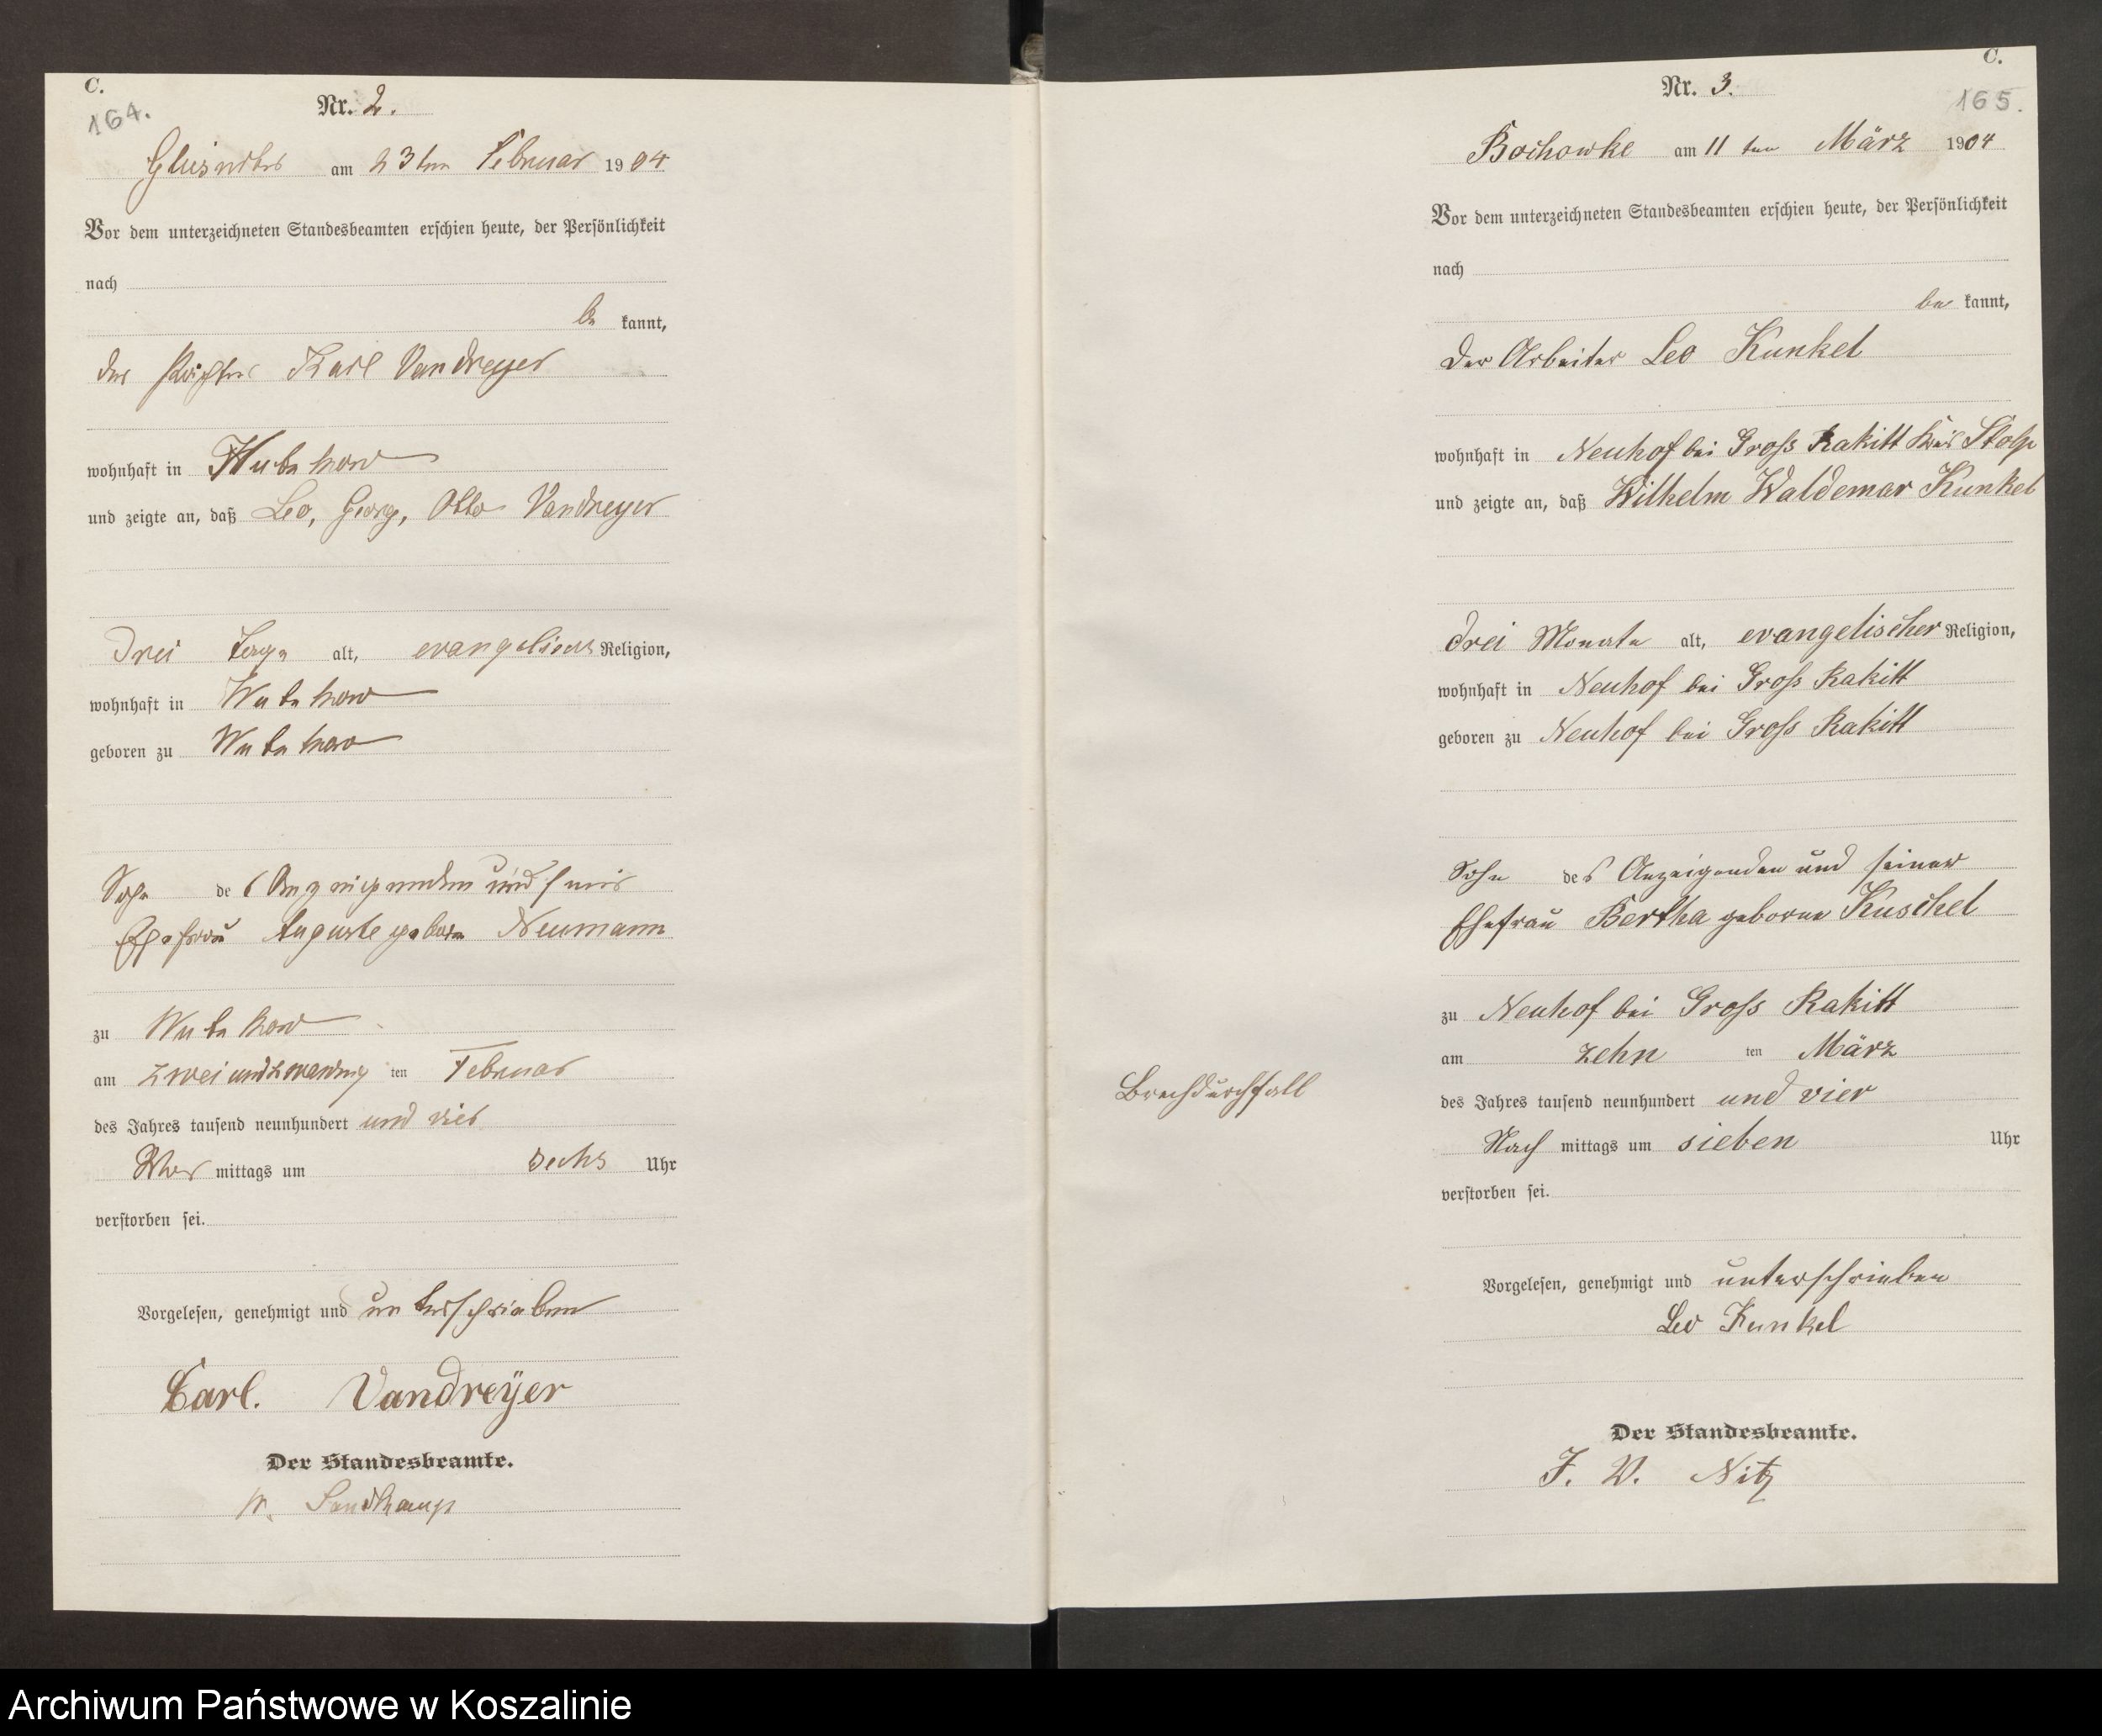 C.
164.
Nr. 2.
am 23ten Februar 1904
Vor dem unterzeichneten Standesbeamten erschien heute, der Persönlichkeit
nach
be kannt,
der Karl Vandreyer
wohnhaft in
und zeigte an, daß Leo, Georg, Otto Vandreyer
drei Tage alt, evangelischer Religion,
wohnhaft in
geboren zu
Sohn des Anzeigenden und seiner
Ehefrau Auguste geborne Neumann
zu
am zweiundzwanzig ten Februar
des Jahres tausend neunhundert und vier
Vor mittags um sechs Uhr
verstorben sei.
Vorgelesen, genehmigt und unterschrieben
Carl. Vandreÿer
Der Standesbeamte.
Sandkamp
C.
165.
Nr. 3.
Bochowke am 11 ten März 1904
Vor dem unterzeichneten Standesbeamten erschien heute, der Persönlichkeit
nach
be kannt,
der Arbeiter Leo Kunkel
wohnhaft in Neuhof bei Gross Rakitt Kreis Stolp
und zeigte an, daß Wilhelm Waldemar Kunkel
drei Monate alt, evangelischer Religion,
wohnhaft in Neuhof bei Gross Rakitt
geboren zu Neuhof bei Gross Rakitt
Sohn des Anzeigenden und seiner
Ehefrau Bertha geborne Kuschel
zu Neuhof bei Gross Rakitt
am zehn ten März
Brechdurchfall
des Jahres tausend neunhundert und vier
Nach mittags um sieben Uhr
verstorben sei.
Vorgelesen, genehmigt und unterschrieben
Leo Kunkel
Der Standesbeamte.
F. W. Nitz
Archiwum Państwowe w Koszalinie